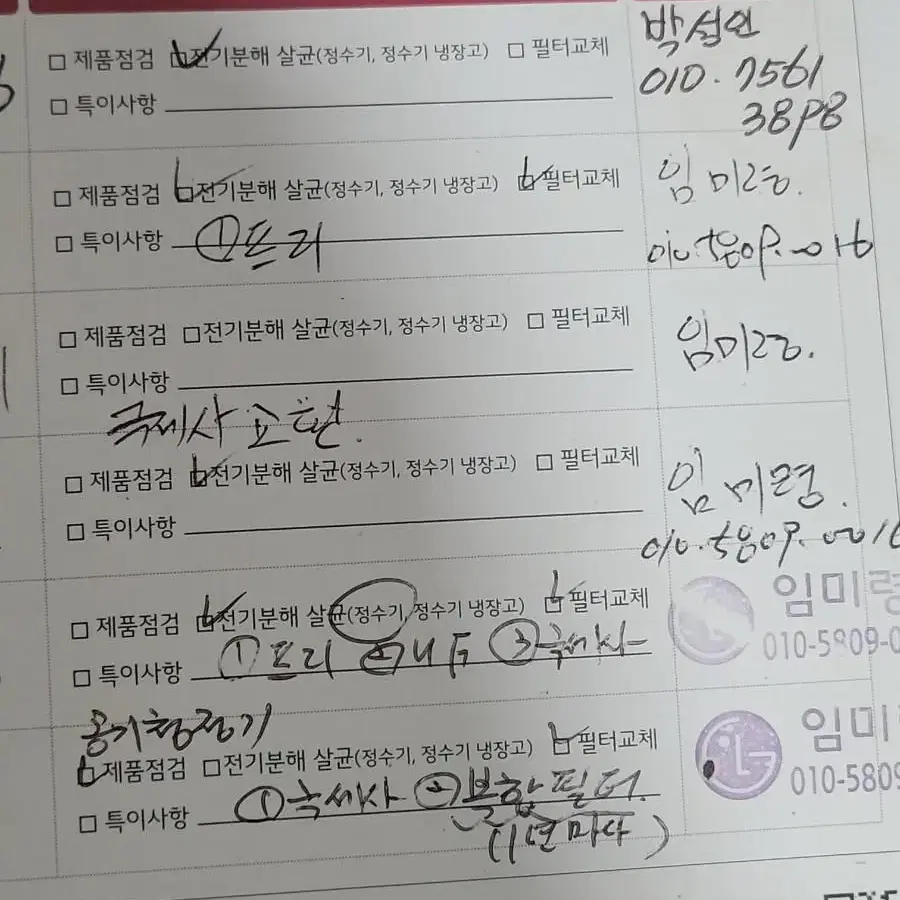 □ 제품점검 □전기분해 살균(정수기, 정수기 냉장고) □ 필터교체
□ 특이사항
박설인
010.7561
38P8
□ 제품점검 □전기분해 살균(정수기, 정수기 냉장고) □ 필터교체
□ 특이사항 ①프리
임미령.
010.5809.0016
□ 제품점검 □전기분해 살균(정수기, 정수기 냉장고) □ 필터교체
□ 특이사항
임미령.
극세사 교환.
□ 제품점검 □전기분해 살균(정수기, 정수기 냉장고) □ 필터교체
□ 특이사항
임미령.
010.5809.0016
□ 제품점검 □전기분해 살균(정수기, 정수기 냉장고) □ 필터교체
□ 특이사항 ①프리 ②UF ③극세사
임미령
010-5809-0
공기청정기
□ 제품점검 □전기분해 살균(정수기, 정수기 냉장고) □ 필터교체
□ 특이사항 ①극세사 ②복합필터.
(1년마다)
임미
LG
010-5809